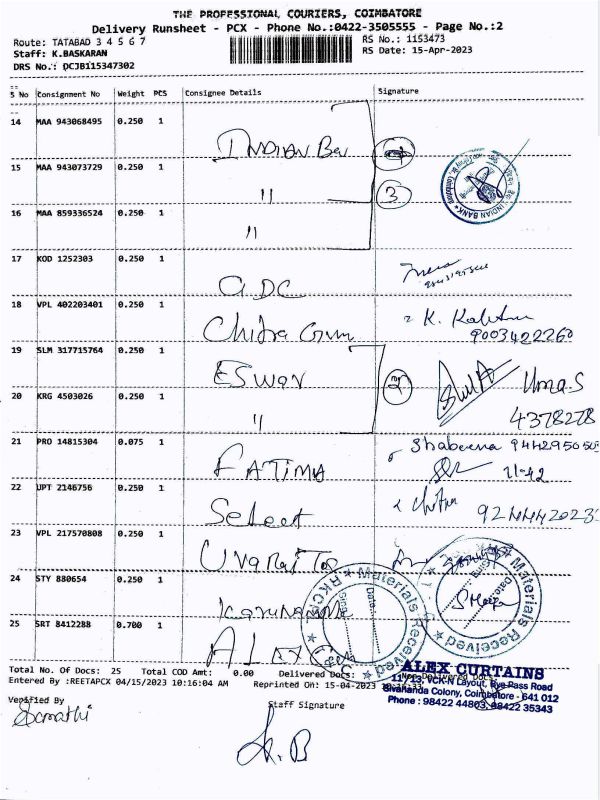 THE PROFESSIONAL COURIERS, COIMBATORE
Delivery Runsheet - PCX - Phone No.:0422-3505555 - Page No.:2
Route: TATABAD 3 4 5 6 7
RS No.: 1153473
Staff: K.BASKARAN
RS Date: 15-Apr-2023
DRS No.: DCJB115347302
S No Consignment No Weight PCS Consignee Details Signature
14 MAA 943068495 0.250 1
INDIAN
15 MAA 943073729 0.250 1 3
"
INDIAN BANK
16 MAA 859336524 0.250 1
"
17 KOD 1252303 0.250 1
18 VPL 402203401 0.250 1
K.
9003422260
19 SLM 317715764 0.250 1
ESWAR 2 Uma.S
20 KRG 4503026 0.250 1
" 4378278
21 PRO 14815304 0.075 1
FATIMA
11-42
22 UPT 2146756 0.250 1
Select
23 VPL 217570808 0.250 1
24 STY 880654 0.250 1
Materials Received
Date:
Materials Received
25 SRT 8412288 0.700 1
ALEX
Total No. Of Docs: 25 Total COD Amt: 0.00 Delivered Docs: Non-Delivered Docs
Entered By :REETAPCX 04/15/2023 10:16:04 AM Reprinted On: 15-04-2023
ALEX CURTAINS
11/13, VCK-N Layout, Bye Pass Road
Sivananda Colony, Coimbatore - 641 012
Phone : 98422 44803, 98422 35343
Verified By
Staff Signature
K.B